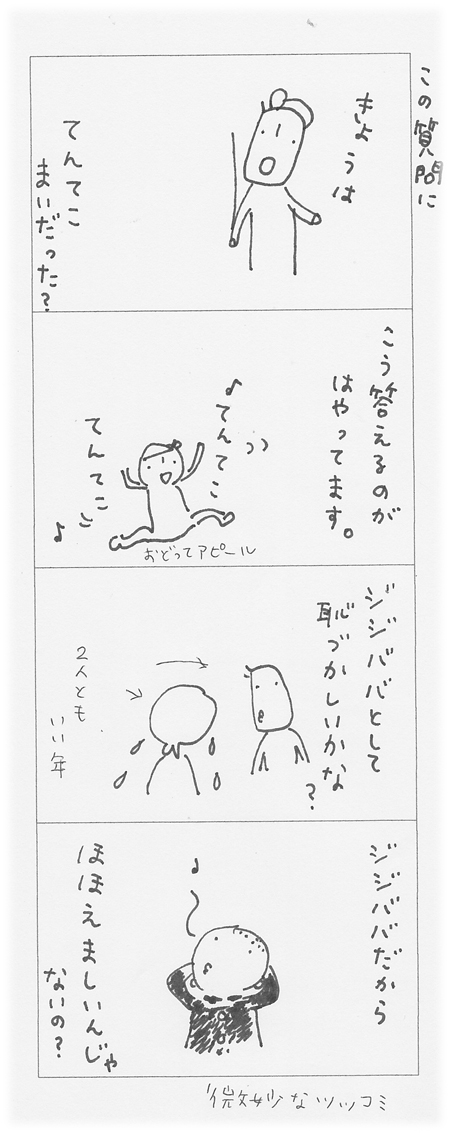 この質問に
きょうは
てんてこ
まいだった?
こう答えるのが
はやってます。
♪てんてこ
てんてこ♪
おどってアピール
ジジババとして
恥づかしいかな?
2人とも
いい年
ジジババだから
♪
ほほえましいんじゃ
ないの?
微妙なツッコミ